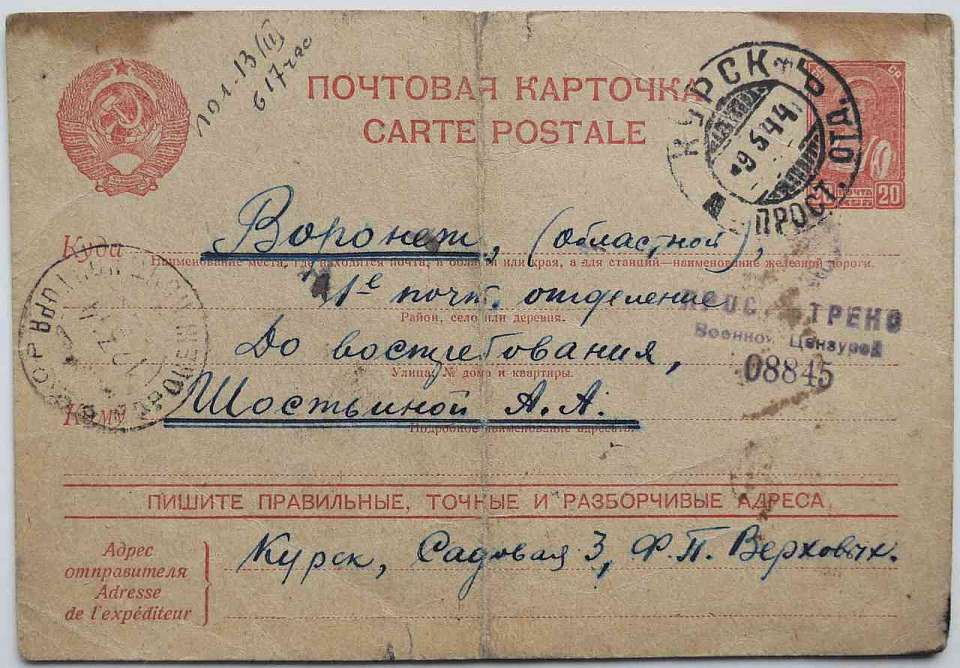 ПОЧТОВАЯ КАРТОЧКА
CARTE POSTALE
КУРСК
ПРОСТ.
9 5 44
ПОЧТА
20
Куда Воронеж, (областной),
Наименование места, где находится почта, и области или края, а для станций—наименование железной дороги.
1е почт. отделение
Район, село или деревня.
До востребования,
Улица, № дома и квартиры.
Кому Шостьиной А. А.
Подробное наименование адресата.
ПРОСМОТРЕНО
Военной Цензурой
08845
ПИШИТЕ ПРАВИЛЬНЫЕ, ТОЧНЫЕ И РАЗБОРЧИВЫЕ АДРЕСА
Адрес
отправителя
Adresse
de l'expéditeur
Курск, Садовая 3, Ф. П. Верховых.